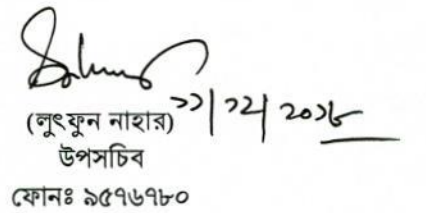 (লুৎফুন নাহার) ১১/১২/২০১৮
উপসচিব
ফোনঃ ৯৫৭৬৭৮০